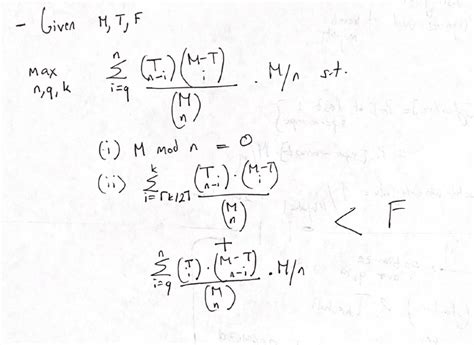 - Given M, T, F
max n, q, k  \sum_{i=q}^{n} \frac{\binom{T}{n-i}\binom{M-T}{i}}{\binom{M}{n}} . M/n  s.t.
(i) M mod n = 0
(ii) \sum_{i=\lceil k/2 \rceil}^{k} \frac{\binom{T}{n-i} \cdot \binom{M-T}{i}}{\binom{M}{n}}
+  < F
\sum_{i=q}^{n} \frac{\binom{T}{i} \cdot \binom{M-T}{n-i}}{\binom{M}{n}} . M/n